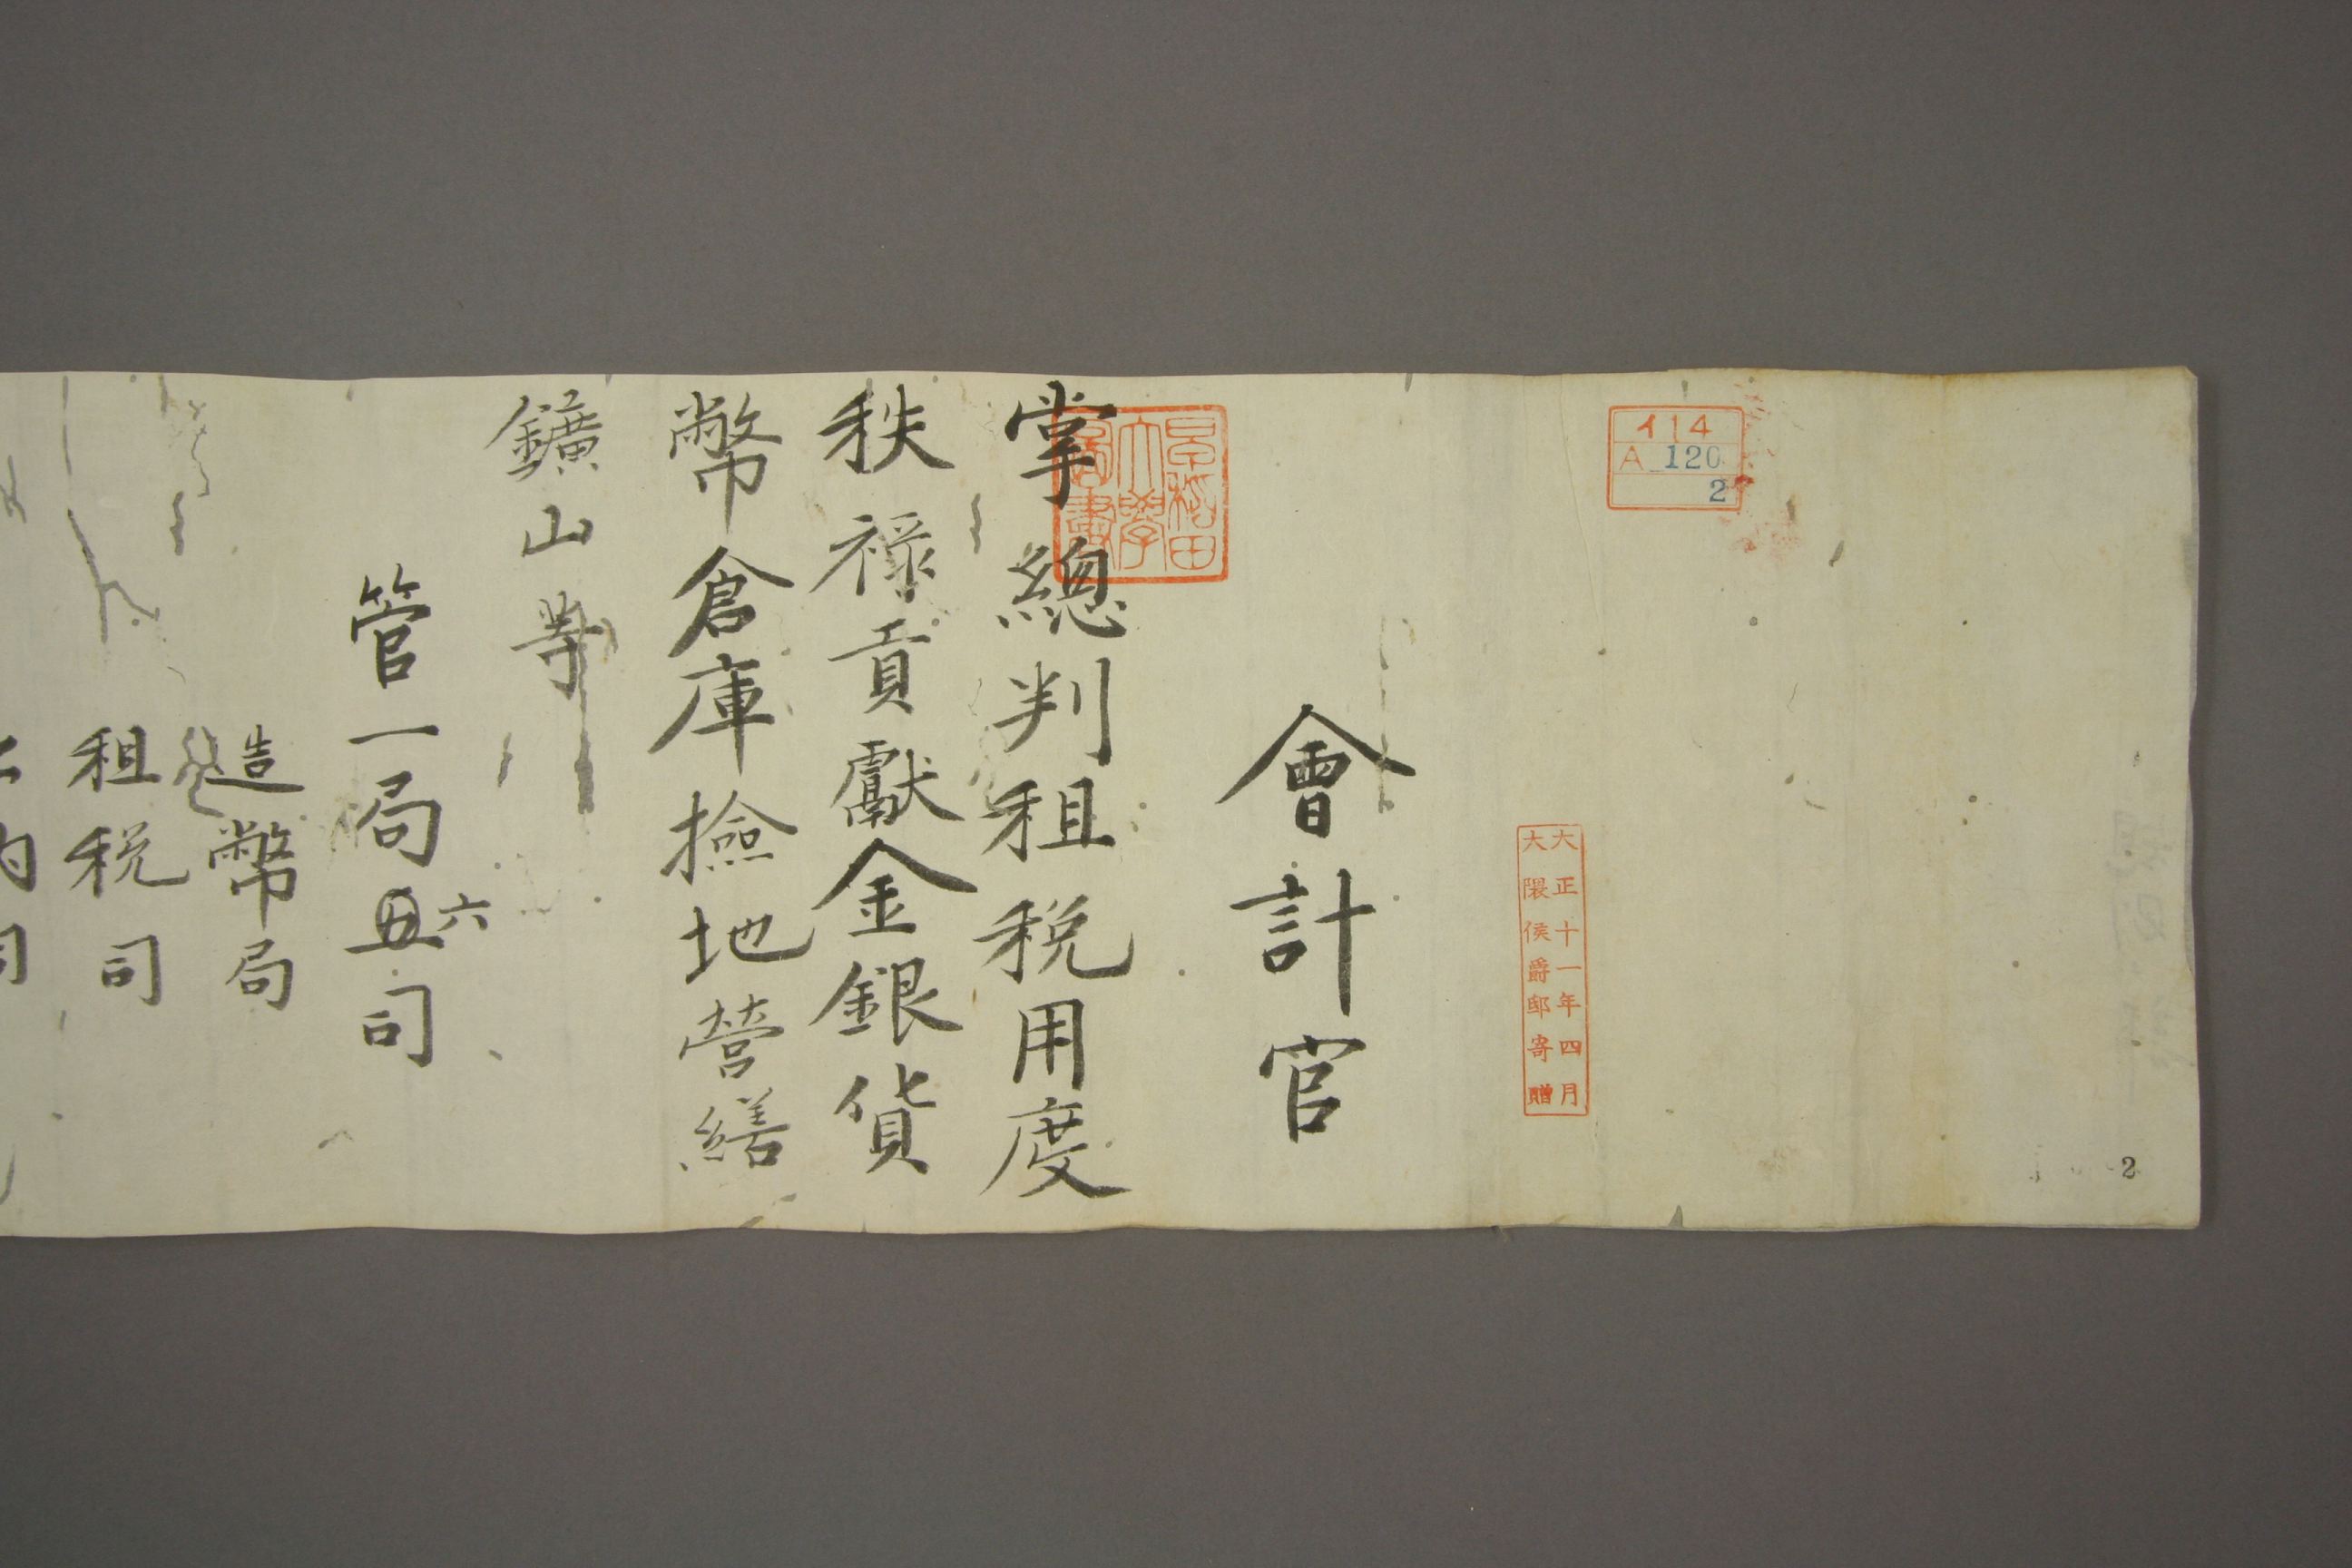 イ14
A 120
2
大正十一年四月
大隈侯爵邸寄贈
早稲田
大學
圖書
會計官
掌總判租税用度
秩禄貢獻金銀貨
幣倉庫撿地営繕
鑛山等
管一局五司
六
造幣局
租税司
2